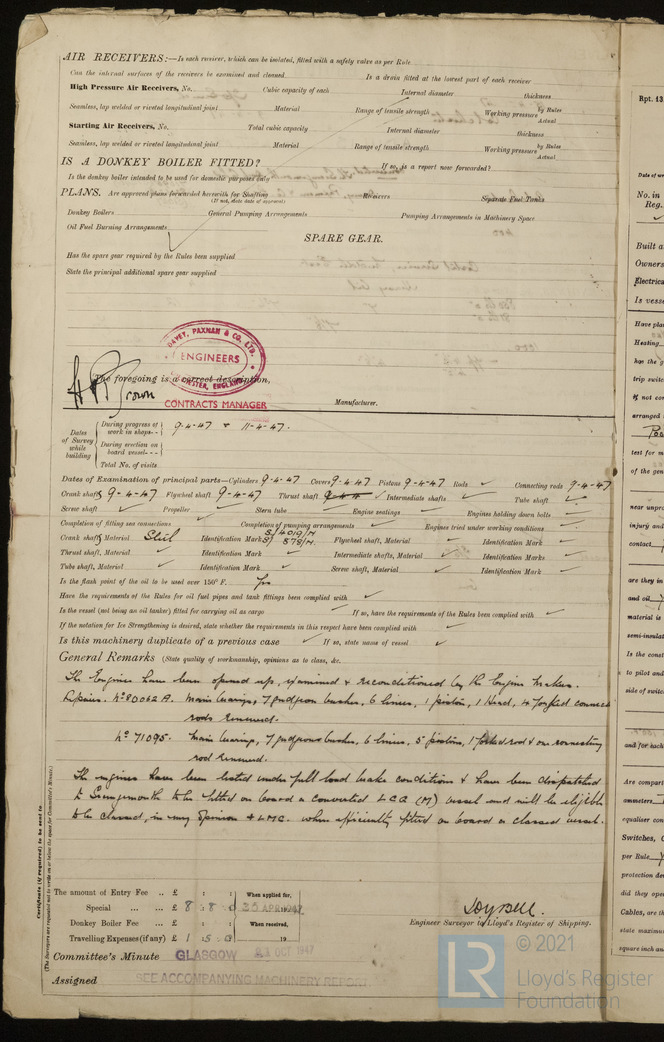 AIR RECEIVERS:—Is each receiver, which can be isolated, fitted with a safety valve as per Rule
Can the internal surfaces of the receivers be examined and cleaned Is a drain fitted at the lowest part of each receiver
High Pressure Air Receivers, No. Cubic capacity of each Internal diameter thickness
Seamless, lap welded or riveted longitudinal joint Material Range of tensile strength Working pressure by Rules Actual
Starting Air Receivers, No. Total cubic capacity Internal diameter thickness
Seamless, lap welded or riveted longitudinal joint Material Range of tensile strength Working pressure by Rules Actual
IS A DONKEY BOILER FITTED? If so, is a report now forwarded?
Is the donkey boiler intended to be used for domestic purposes only
PLANS. Are approved plans forwarded herewith for Shafting Receivers Separate Fuel Tanks
(If not, state date of approval)
Donkey Boilers General Pumping Arrangements Pumping Arrangements in Machinery Space
Oil Fuel Burning Arrangements
SPARE GEAR.
Has the spare gear required by the Rules been supplied
State the principal additional spare gear supplied
DAVEY, PAXMAN & CO. LTD.
ENGINEERS
COLCHESTER, ENGLAND
The foregoing is a correct description,
Brown
CONTRACTS MANAGER
Manufacturer.
Dates of Survey while building
During progress of work in shops - - 9-4-47 & 11-4-47.
During erection on board vessel - - -
Total No. of visits
Dates of Examination of principal parts—Cylinders 9-4-47 Covers 9-4-47 Pistons 9-4-47 Rods ✓ Connecting rods 9-4-47
Crank shaft 9-4-47 Flywheel shaft 9-4-47 Thrust shaft ✓ Intermediate shafts ✓ Tube shaft ✓
Screw shaft ✓ Propeller ✓ Stern tube Engine seatings ✓ Engines holding down bolts ✓
Completion of fitting sea connections Completion of pumping arrangements ✓ Engines tried under working conditions ✓
Crank shaft, Material Steel Identification Mark S/4019/M S/ 878/M. Flywheel shaft, Material ✓ Identification Mark ✓
Thrust shaft, Material ✓ Identification Mark ✓ Intermediate shafts, Material ✓ Identification Marks ✓
Tube shaft, Material ✓ Identification Mark ✓ Screw shaft, Material ✓ Identification Mark ✓
Is the flash point of the oil to be used over 150° F. Yes
Have the requirements of the Rules for oil fuel pipes and tank fittings been complied with ✓
Is the vessel (not being an oil tanker) fitted for carrying oil as cargo ✓ If so, have the requirements of the Rules been complied with ✓
If the notation for Ice Strengthening is desired, state whether the requirements in this respect have been complied with ✓
Is this machinery duplicate of a previous case ✓ If so, state name of vessel ✓
General Remarks (State quality of workmanship, opinions as to class, &c.
The Engines have been opened up, examined & reconditioned by the Engine Makers.
Repairs. No 80062 A. Main bearings, 7 gudgeon bushes, 6 liners, 1 piston, 1 Head, 4 forked connect
rods renewed.
No 71095. Main bearings, 7 gudgeons bushes, 6 liners, 5 pistons, 1 forked rod & one connecting
rod renewed.
The engines have been tested under full load brake conditions & have been dispatched
to Grangemouth to be fitted on board a converted LCG (M) vessel and will be eligible
to be classed, in my opinion + LMC. when efficiently fitted on board a classed vessel.
The amount of Entry Fee .. £ : : When applied for,
Special ... ... £ 8 : 8 : 0 25 APR 1947
Donkey Boiler Fee ... £ : : When received,
Travelling Expenses (if any) £ 1 : 5 : 0 19
Engineer Surveyor to Lloyd's Register of Shipping.
Committee's Minute GLASGOW OCT 1947
Assigned SEE ACCOMPANYING MACHINERY REPORT
Certificate (if required) to be sent to
(The Surveyors are requested not to write on or below the space for Committee's Minute.)
© 2021
LR
Lloyd's Register
Foundation
Rpt. 13
Date of w
No. in
Reg.
Built a
Owners
Electrica
Is vesse
Have plan
Heating
has the g
trip switc
if not con
arranged
test for m
of the gene
near unpro
injury and
contact
are they in
and oil
material is
semi-insulat
Is the const
to pilot and
side of switc
and for each
Are compart
ammeters
equaliser con
Switches, C
per Rule
protection de
did they ope
Cables, are th
state maximu
square inch an